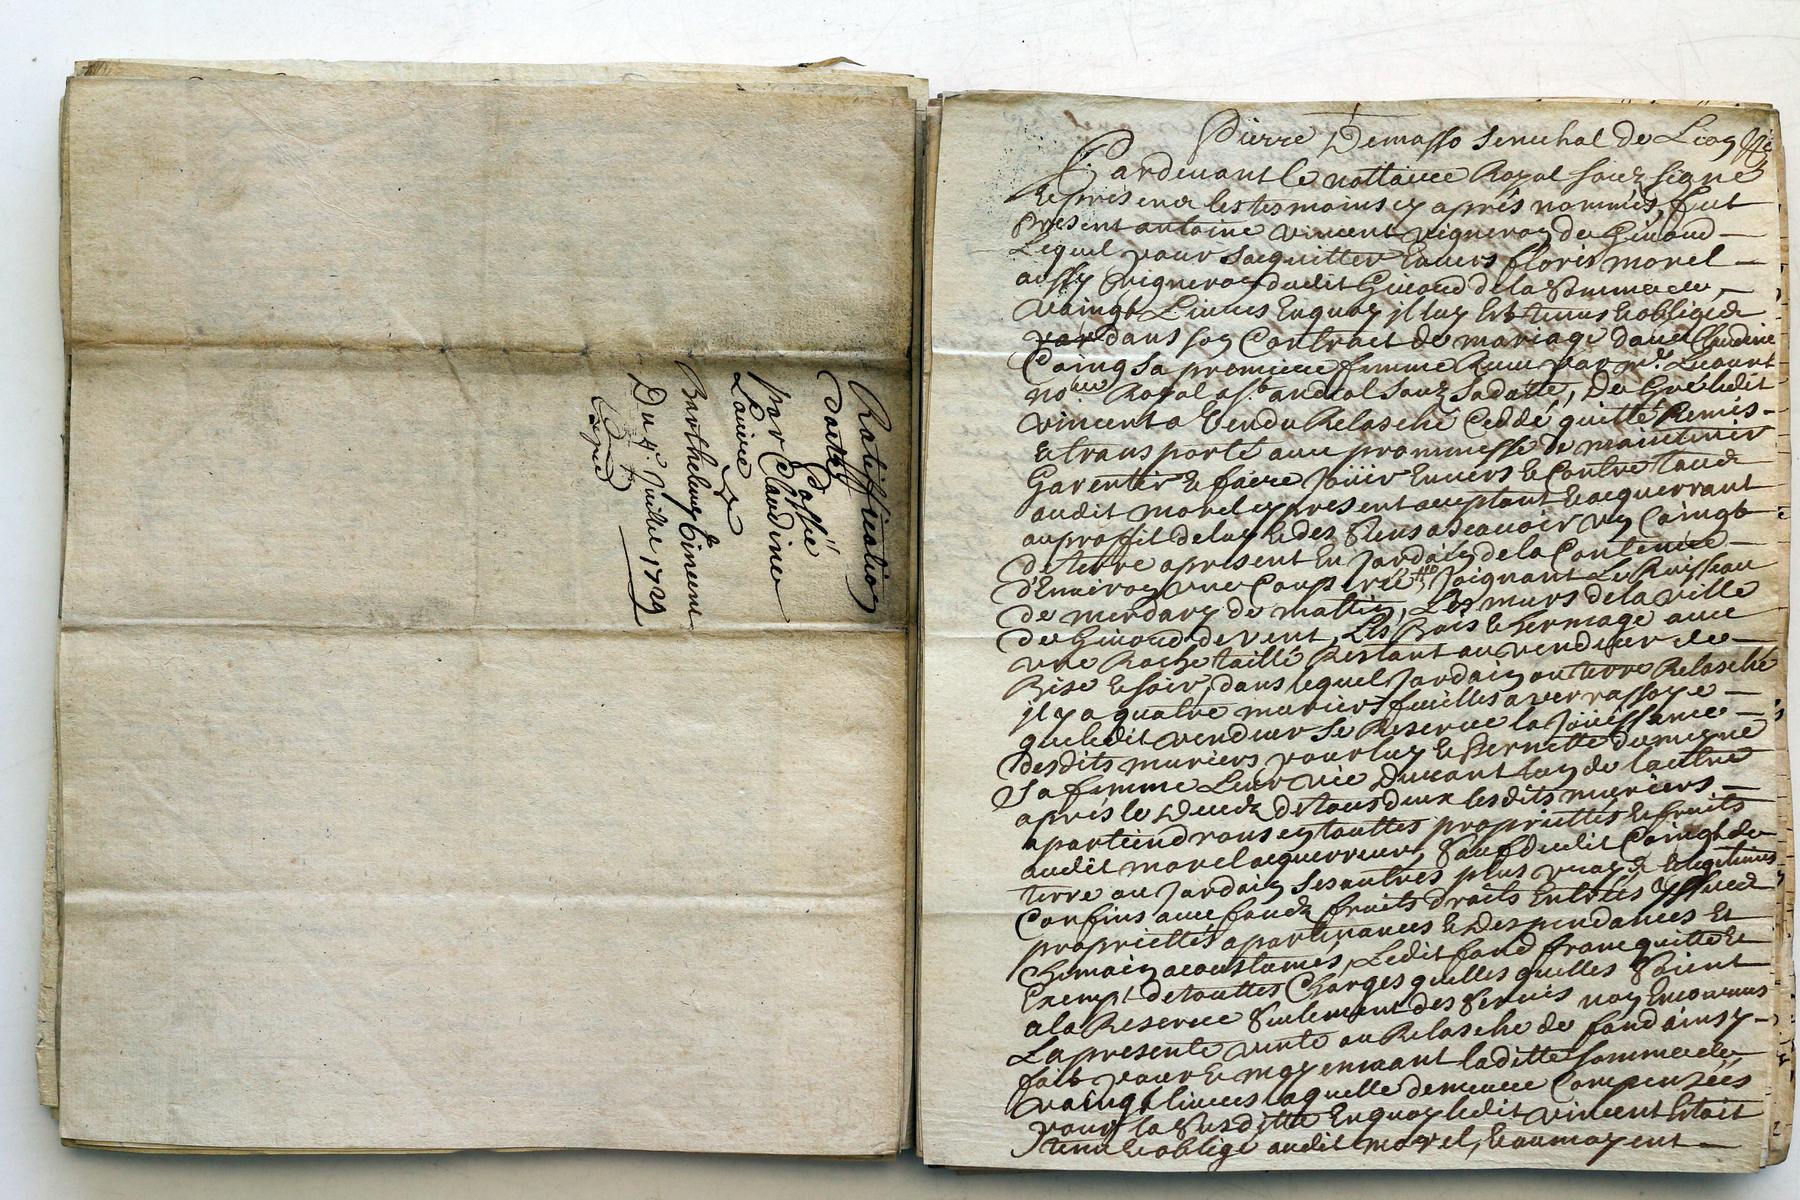 Ratiffication
d'actte Passée
par Claudine
Lavivee &
Barthelemy Vincent
Du 4e Juillet 1729
Expiee
Pierre Demasso Senechal de Lion
Pardeuant le nottaire Royal souz signé
Et presence les tesmoins cy aprés nommés, fut
present antoine vincent vigneron de Giuord
Lequel pour sacquitter Enuers floris morel
aussy vigneron dudit Giuord de la somme de
vaingt Liures Enquoy jl luy Est tenus & obligé
dans son Contrait de mariage d'auec Claudine
Coing sa premiere femme Receu par Me.
nore Royal souz sa datte, De Gré ledit
vincent a Vendu Relasché Ceddé quitté Remis
& transporté auec prommesse de maintenir
Garentir & faire Joüir Enuers & Contre touts
audit morel cy present acceptant & acquerrant
au proffit de luy & des siens a scauoir vn Coingt
de terre apresent En Jardain de la Contenue
d'Enuiron vne Coup Joignant Le Ruisseau
de merdary de mattin, Les murs de la ville
de Giuord de vent, Les Bois & hermage auec
vne Roche taillé Restant au vendeur de
Bise & soir, dans lequel Jardain ou terre Relasché
jl y a quatre muriers feuilles a
que ledit vendeur Se Reserue la Joüissance
desdits muriers pour luy & Pernette
Sa femme Leur vie Durant Luy de lautre
aprés le Deceds de tous deux lesdits muriers
apartiendrons en touttes proprietté & fruits
audit morel acquerreur, Sauf dudit Coingt de
terre ou Jardain Ses autres plus vrays & legitimes
Confins auec fonds fruits droits Entrées yssues
propriettés apartenances & Despendances Et
Chemain acoustumés, Ledit fond franc quitte &
Exempt de touttes Charges quelles quelles Soient
a la Reserue Seulement des Seruis non Encourrus
La presente vente ou Relasche de fond ainsy
fait pour & moyennant laditte somme de
vaingt liures laquelle demeure Compensées
pour la Susditte Enquoy ledit vincent Estoit
tenu & obligé audit morel, & aumoyent